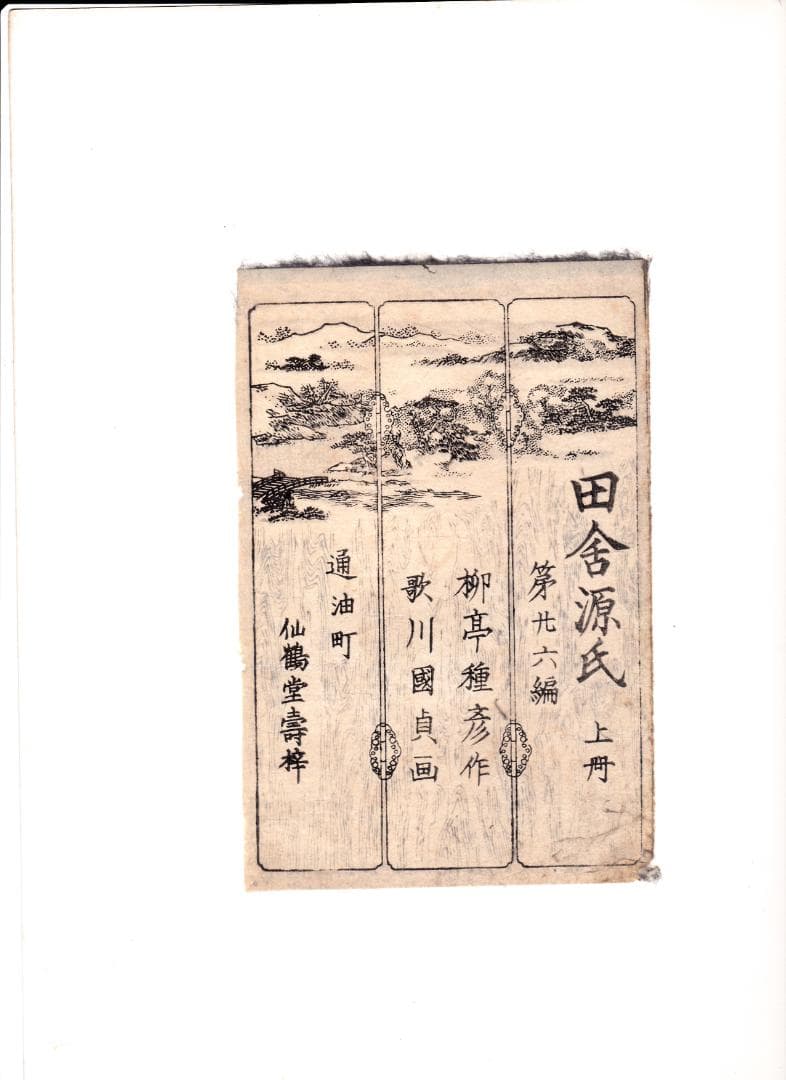 田舎源氏 上冊
第廿六編
柳亭種彦作
歌川國貞画
通油町
仙鶴堂壽梓